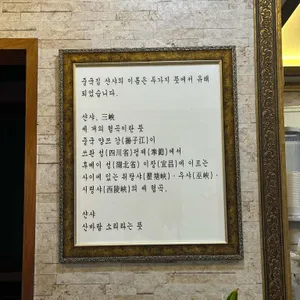 중국집 산샤의 이름은 두가지 뜻에서 유래
되었습니다.
산샤, 三峽
세 개의 협곡이란 뜻
중국 양쯔 강(揚子江)이
쓰촨 성(四川省)펑제(奉節)에서
후베이 성(湖北省) 이창(宜昌)에 이르는
사이에 있는 취탕샤(瞿塘峽)·우샤(巫峽)·
시링샤(西陵峽)의 세 협곡.
산샤
산바람 소리라는 뜻